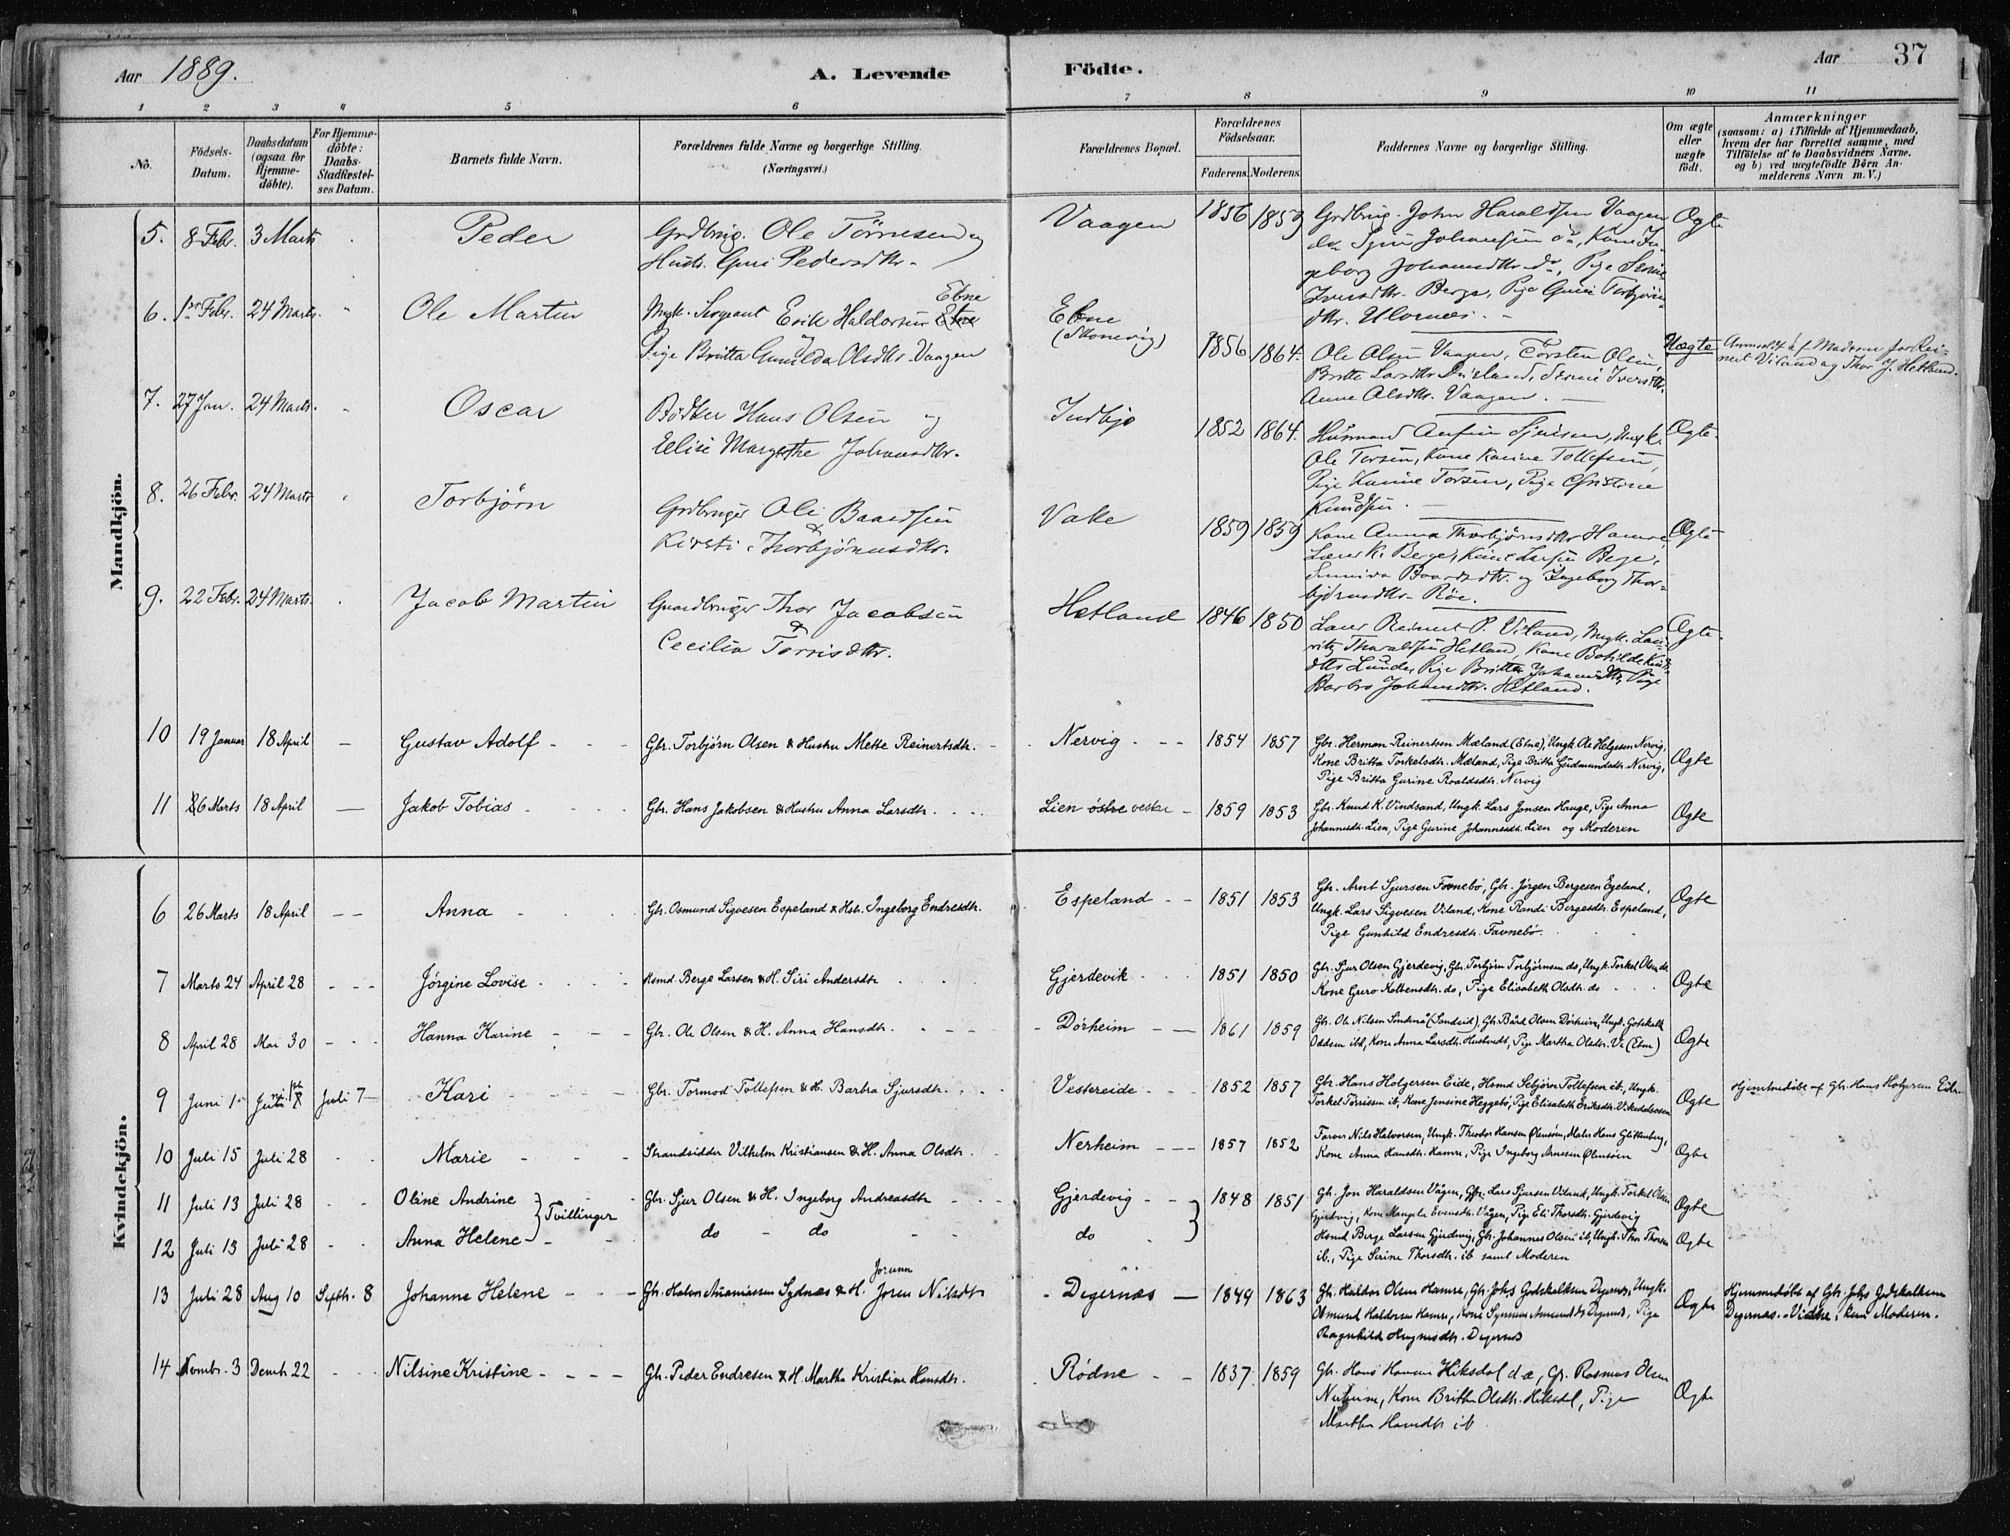 Aar 1889.
A. Levende
Födte.
Aar
37
1 2 3 4 5 6 7 8 9 10 11
No.
Födsels-Datum.
Daabsdatum (ogsaa for Hjemme-döbte).
For Hjemme-döbte: Daabs-Stadfæstel-ses Datum.
Barnets fulde Navn.
Forældrenes fulde Navne og borgerlige Stilling. (Næringsvei.)
Forældrenes Bopæl.
Forældrenes Födselsaar.
Faderens. Moderens.
Faddernes Navne og borgerlige Stilling.
Om ægte eller uægte födt.
Anmærkninger
(saasom: a) i Tilfælde af Hjemmedaab, hvem der har forrettet samme, med Tilföielse af to Daabsvidners Navne. og b) ved uægtefödte Börn Anmelderens Navn m. V.)
Mandkjön.
5. 8 Febr. 3 Marts Peder Grdbrug. Ole Törnesen og Vaagen 1856 1859 Grdbrug. John Haraldsen Vaagen Ægte
Hustr. Guri Pedersdtr.
do Sjur Johansen do, Kone In-
geborg Johansdtr. do, Pige Serine
Iversdtr. Berge, Pige Guri Torbjörns-
dtr. Ulvenæs.
6. 1ste Febr. 24 Marts Ole Martin Ungk. Sergeant Erik Haldorsen Etne Etne (Skonevig) 1856 1864. Ole Olsen Vaagen, Torsten Olsen, Uægte
Pige Britta Gunilda Olsdtr. Vaagen
Anne Olsdtr. Vaagen.
7. 27 Jan. 24 Marts. Oscar Bödker Hans Olsen og Indbjo 1852 1864. Ægte
Elise Margrethe Johansdtr.
Ole Torsen, Kone Karine Tollefsen,
Pige Karine Torsen, Pige Christine
Knudsen.
8. 26 Febr. 24 Marts Torbjörn Grdbruger Ole Baardsen Vake 1859 1859 Kone Anna Thorbjörnsdtr Hamre, Ægte
& Kirsti Thorbjörnsdtr.
Sunniva Baardsdtr. og Ingeborg Thor-
björnsdtr. Röe.
9. 22 Febr. 24 Marts. Jacob Martin Gaardbruger Thor Jacobsen Hetland 1846 1850 Reinert P. Viland, Ungk. Lau- Ægte
& Cecilia Torrisdtr.
ritz Tharaldsen Hetland, Kone Bothilde
Lunde, Pige Britta Johansdtr, Pige
Barbro Johansdtr. Hetland.
10 19 Januar 18 April — Gustav Adolf Gbr. Torbjørn Olsen & Hustru Mette Reinertsdtr. Nervig 1854 1857 Gbr. Herman Reinertsen Mæland (Etne), Ungk Ole Helgesen Nervig, Ægte
Kone Britta Torkelsdtr. Mæland, Pige Britta Gudmundsdtr. Nervig,
Pige Britta Gurine Roaldsdtr. Nervig
11 26 Marts 18 April — Jakob Tobias Gbr. Hans Jakobsen & Hustru Anna Larsdtr. Lien østre vestre 1859 1853 Gbr. Knud K. Vindsand, Ungk. Lars Jonsen Hauge, Pige Anna Ægte
Johannesdtr. Lien, Pige Gurine Johannesdtr. Lien og Moderen
Kvindekjön.
6 26 Marts 18 April — Anna Gbr. Osmund Sigvesen Espeland & Hstr. Ingeborg Endresdtr. Espeland 1851 1853 Gbr. Arnt Sjursen Favnebø, Gbr. Jörgen Bergesen Egeland, Ægte
Ungk. Lars Sigvesen Viland, Kone Randi Bergesdtr. Espeland,
Pige Gunhild Endresdtr. Favnebø.
7 Marts 24 April 28 Jørgine Lovise Hsmd Berge Larsen & H. Siri Andersdtr Gjerdevik 1851 1850 Gbr. Sjur Olsen Gjerdevig, Gbr. Torbjørn Torbjørnsen do, Ungk. Torkel Olsen do Ægte
Kone Guro Kolbensdtr. do, Pige Elisabeth Olsdtr. do
8 April 28 Mai 30 Hanna Karine Gbr. Ole Olsen & H. Anna Hansdtr. Dørheim 1861 1859 Gbr. Ole Nilsen (Sandeid), Gbr Bård Olsen Dørheim, Ungk. Gotskalk Ægte
Oddsen ibd, Kone Anna Larsdtr. Hustvedt, Pige Martha Olsdtr. (Etne)
9 Juni 1 Juli 7 Kari Gbr. Tormod Tollefsen & H. Barbra Sjursdtr. Vestereide 1852 1857 Gbr. Hans Holgersen Eide, Hsmd Sebjørn Tollefsen ib., Ungk. Ægte Hjemmedøbt af Gbr. Hans Holgersen Eide
Torkel Tørrissen ib, Kone Jensine Heggebø, Pige Elisabeth Eriksdtr.
10 Juli 15 Juli 28 Marie Strandsidder Vilhelm Kristiansen & H. Anna Olsdtr. Nerheim 1857 1852 Farver Nils Halvorsen, Ungk. Theodor Hansen Ølensøen, Maler Hans Glittenberg, Ægte
Kone Anna Hansdtr. Hamre, Pige Ingeborg Arnesen Ølensøen
11 Juli 13 Juli 28 Oline Andrine } Tvillinger Gbr. Sjur Olsen & H. Ingeborg Andreasdtr Gjerdevig 1848 1851 Gbr. Jon Haraldsen Vågen, Gbr. Lars Sjursen Viland, Ungk. Torkel Olsen Ægte
Gjerdevig, Kone Mangela Evensdtr. Vågen, Pige Eli Thorsdtr. Gjerdevig
12 Juli 13 Juli 28 Anna Helene do do do Hsmd Berge Larsen Gjerdevig, Gbr. Johannes Olsen ib, Ungk. Thor Thorsen Ægte
ib., Pige Serine Thorsdtr. ib samt Moderen
13 Juli 28 Aug 10 Septbr. 8 Johanne Helene Gbr. Halvor Ananiassen Sydnæs & H. Jorunn Joren Nilsdtr Degernæs 1849 1863 Gbr. Haldor Olsen Hamre, Gbr. Johs Godskalksen Degernæs, Ungk. Ægte Hjemmedøbt af Gbr. Johs Godskalksen
Osmund Haldorsen Hamre, Kone Synneve Amundsdtr Degernæs, Pige
Degernæs. Vidne: kun Moderen.
Ragnhild Degernæs
14 Novembr. 3 Decmbr. 22 Nilsine Kristine Gbr. Peder Endresen & H. Martha Kristine Hansdtr. Rödne 1837 1859 Gbr. Hans Hiksdal d.æ, Gbr. Rasmus Olsen Ægte
Nerheim, Kone Britha Olsdtr. Hiksdal, Pige
Martha Hansdtr ib